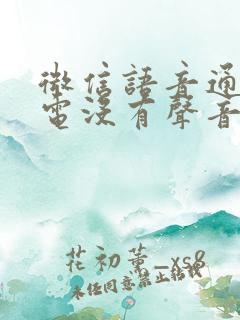 微信語音通
電沒有聲音
花初薰_xs8
未经同意禁止转载